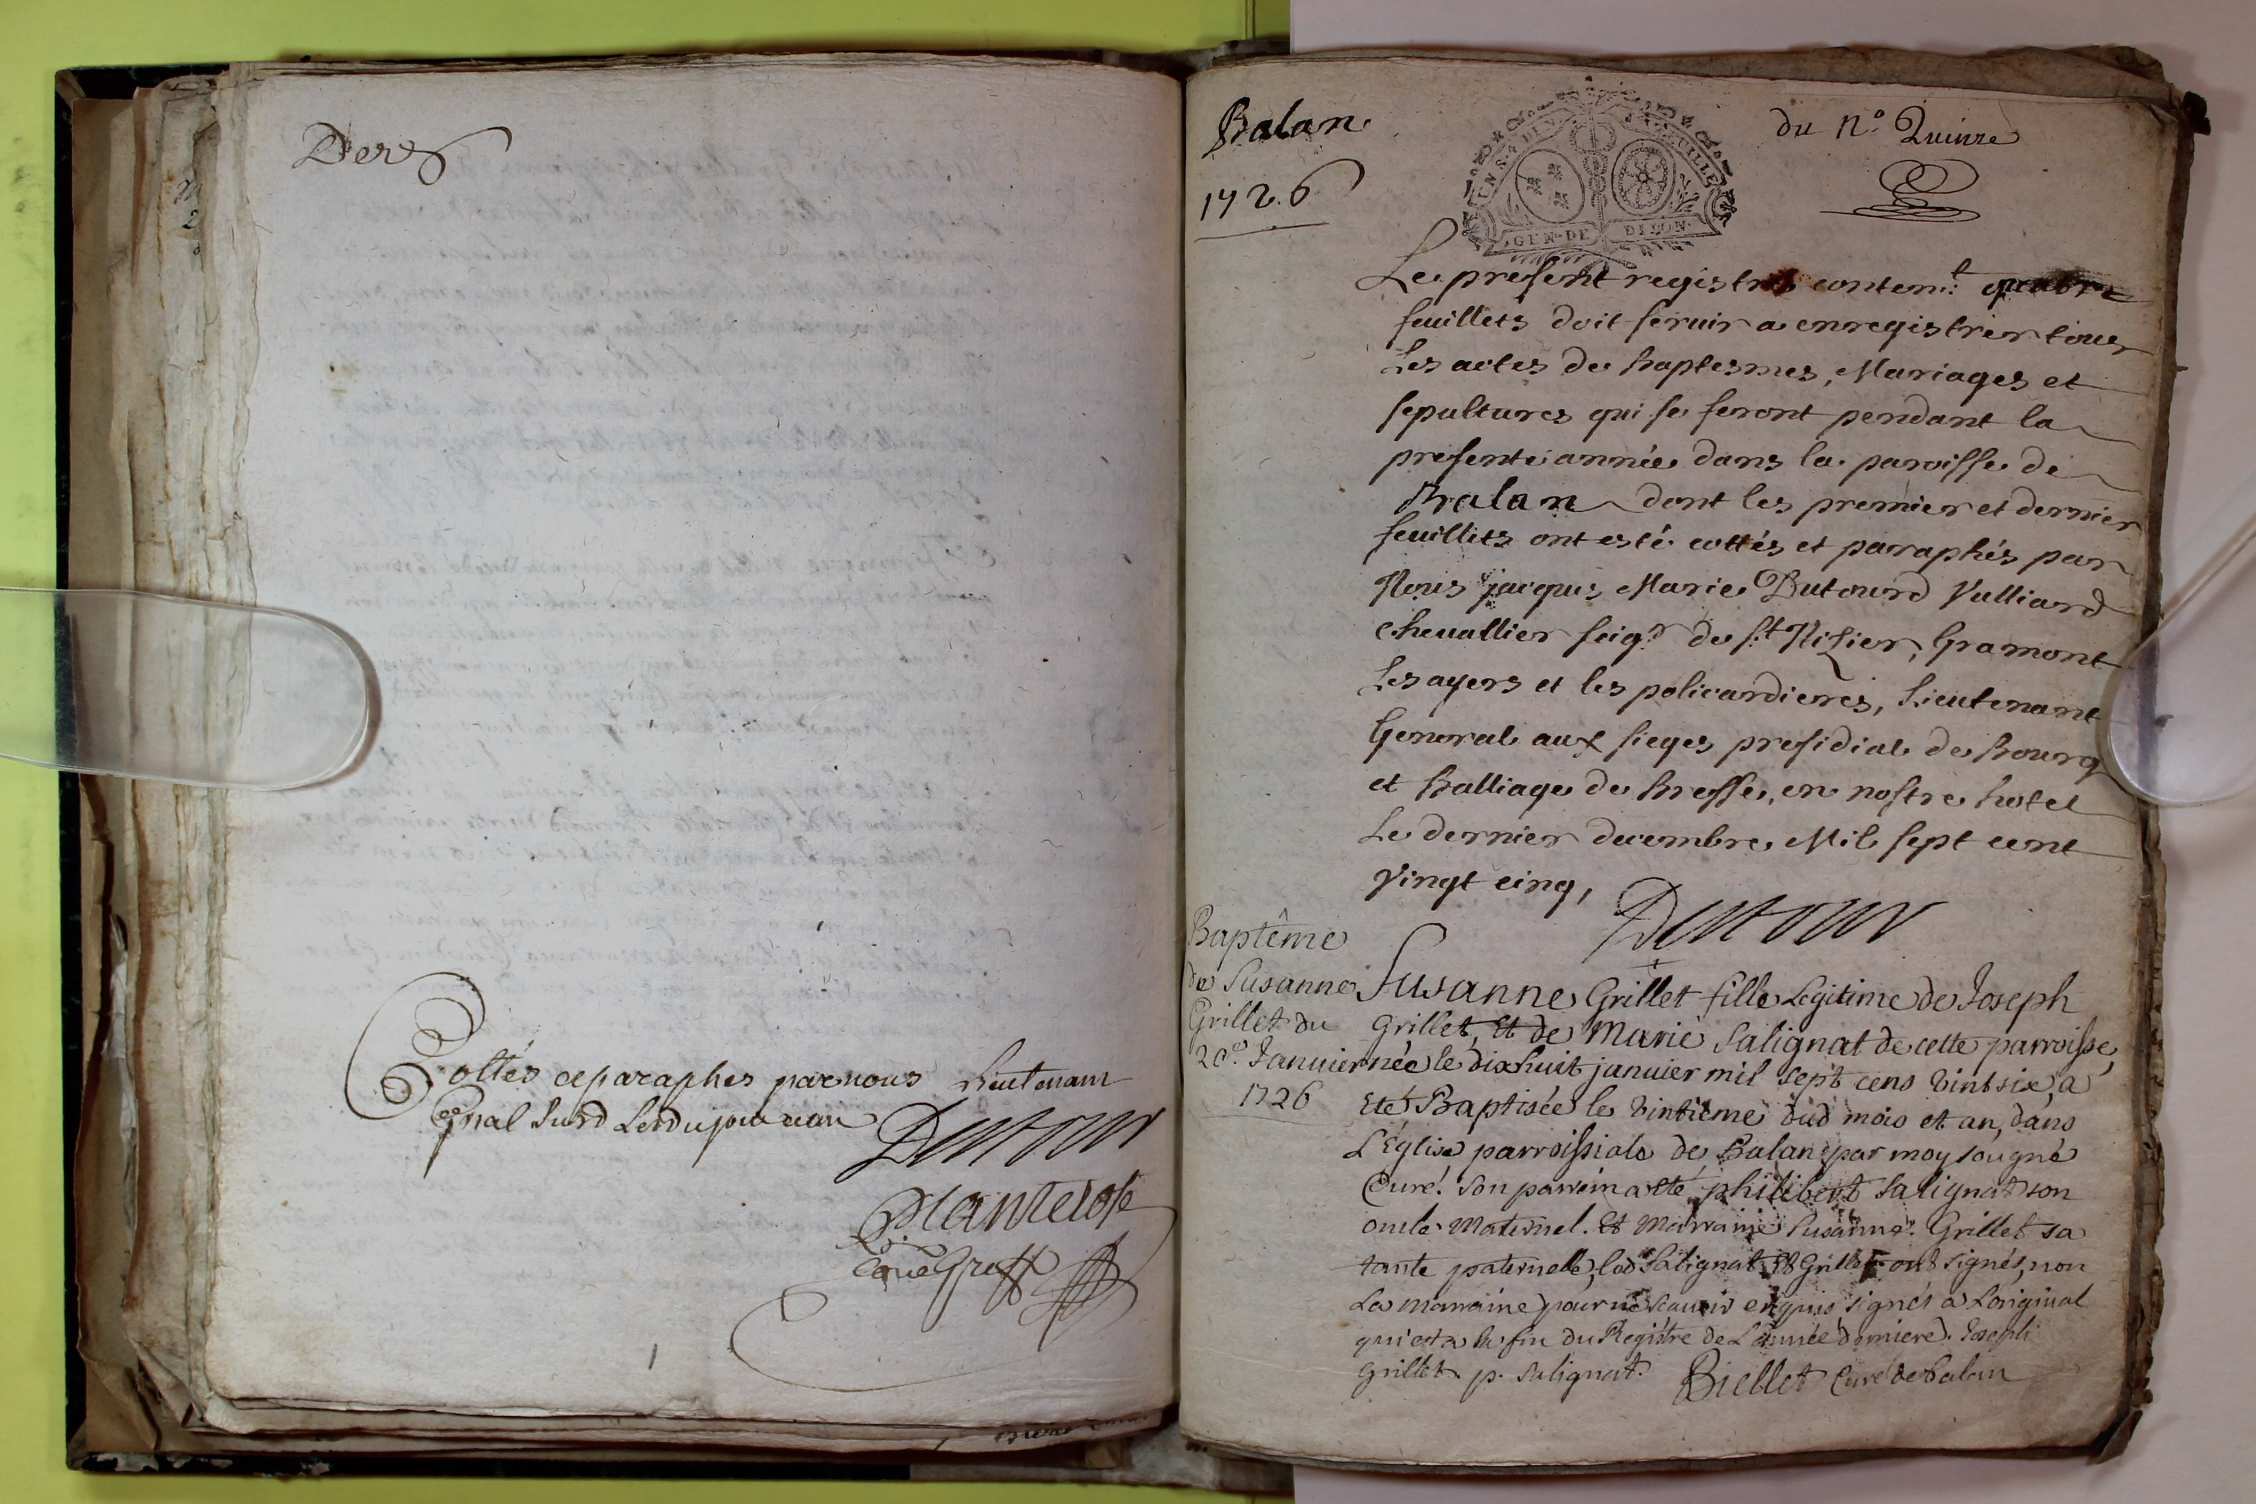 Der
Cottés et paraphes par nous Lieutenant
gnal
Dutour
Planterose
Balan
1726
GEN. DE DIION
du n.o Quinze
Le present registre conten.t quatre
feuillets doit seruir a enregistrer tous
Les actes de baptesmes, Mariages et
sepultures qui se feront pendant la
presente année dans la paroisse de
Balan dont les premier et dernier
feuillets ont esté cottés et paraphés par
Nous jacques Marie Dutourd Vulliard
cheuallier seig.r de s.t Nizier, Gramont
Les ayers et les policardieres, Lieutenant
General aux sieges presidial de Bourg
et balliage de bresse, en nostre hotel
Le dernier decembre Mil sept cent
vingt cinq,
Dutour
Baptême
de Susanne
Grillet du
20.e Januier
1726
Susanne Grillet fille Legitime de Joseph
Grillet, Et de Marie Salignat de cette parroisse,
née le dixhuit januier mil sept cens vint six, a
Eté Baptisée le vintième dud mois et an, dans
L'Eglise parroissiale de Balan par moy sougné
Curé. son parrein a eté philibert Salignat son
oncle Maternel. Et Marraine Susanne Grillet sa
tante paternelle, led Salignat Et Grillet ont signés, non
La marraine pour ne scauoir enquis signés a L'original
qui est a la fin du Registre de L'année derniere. Joseph
Grillet. p. Salignat. Biellet Curé de balan